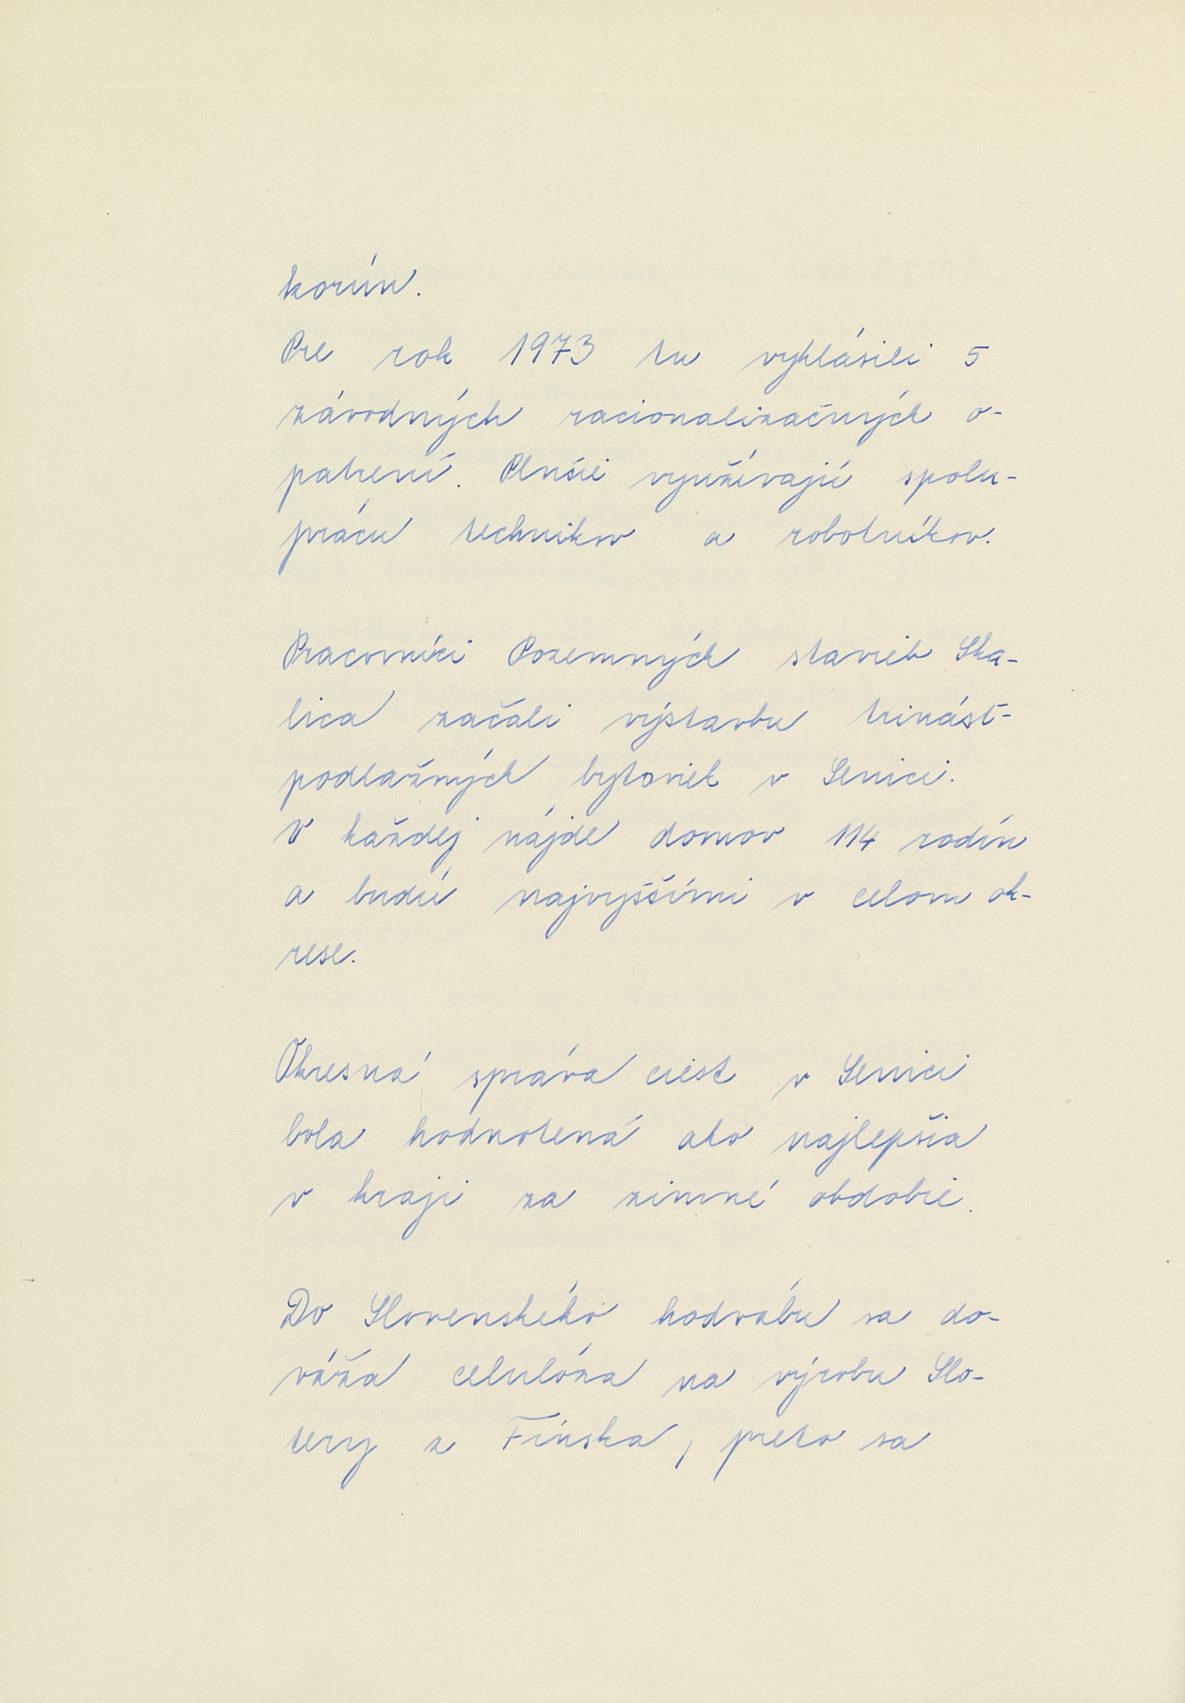 korún.
Pre rok 1973 tu vyhlásili 5
závodných racionalizačných o-
patrení. Plnšie využívajú spolu-
prácu technikov a robotníkov.
Pracovníci Pozemných stavieb Ska-
lica začali výstavbu trinásť-
podlažných bytoviek v Senici.
V každej nájde domov 114 rodín
a budú najvyššími v celom ok-
rese.
Okresná správa ciest v Senici
bola hodnotená ako najlepšia
v kraji za zimné obdobie.
Do Slovenského hodvábu sa do-
váža celulóza na výrobu Slo-
tery z Fínska, preto sa